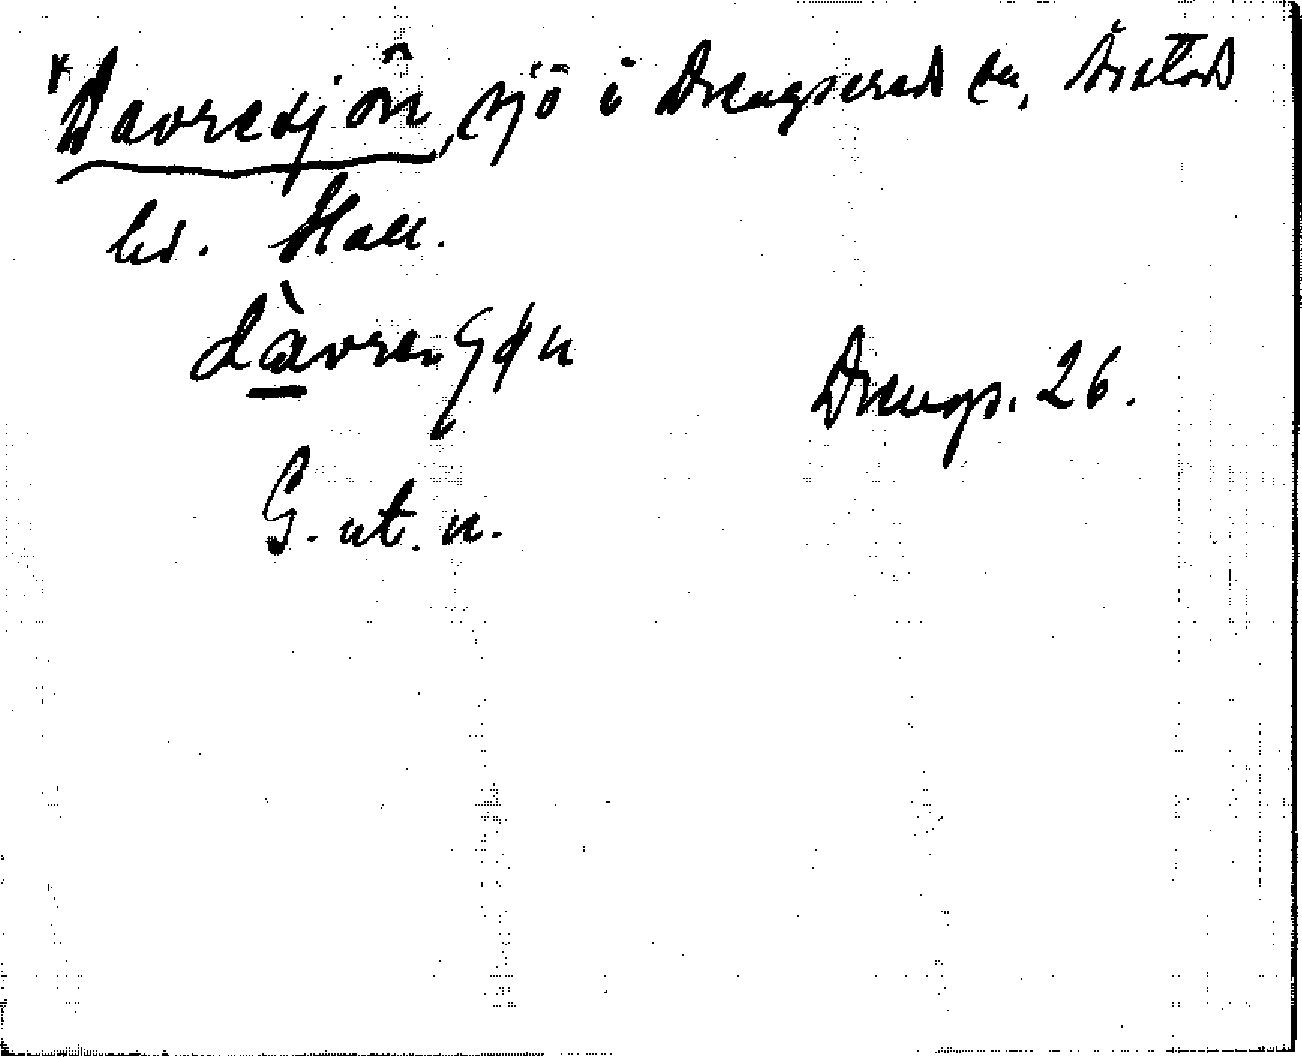 *Davresjön, sjö i Drengsereds sn, Årstads
hd. Hall.
dàvre.ʃøn
Drengs. 26.
G. ut. n.